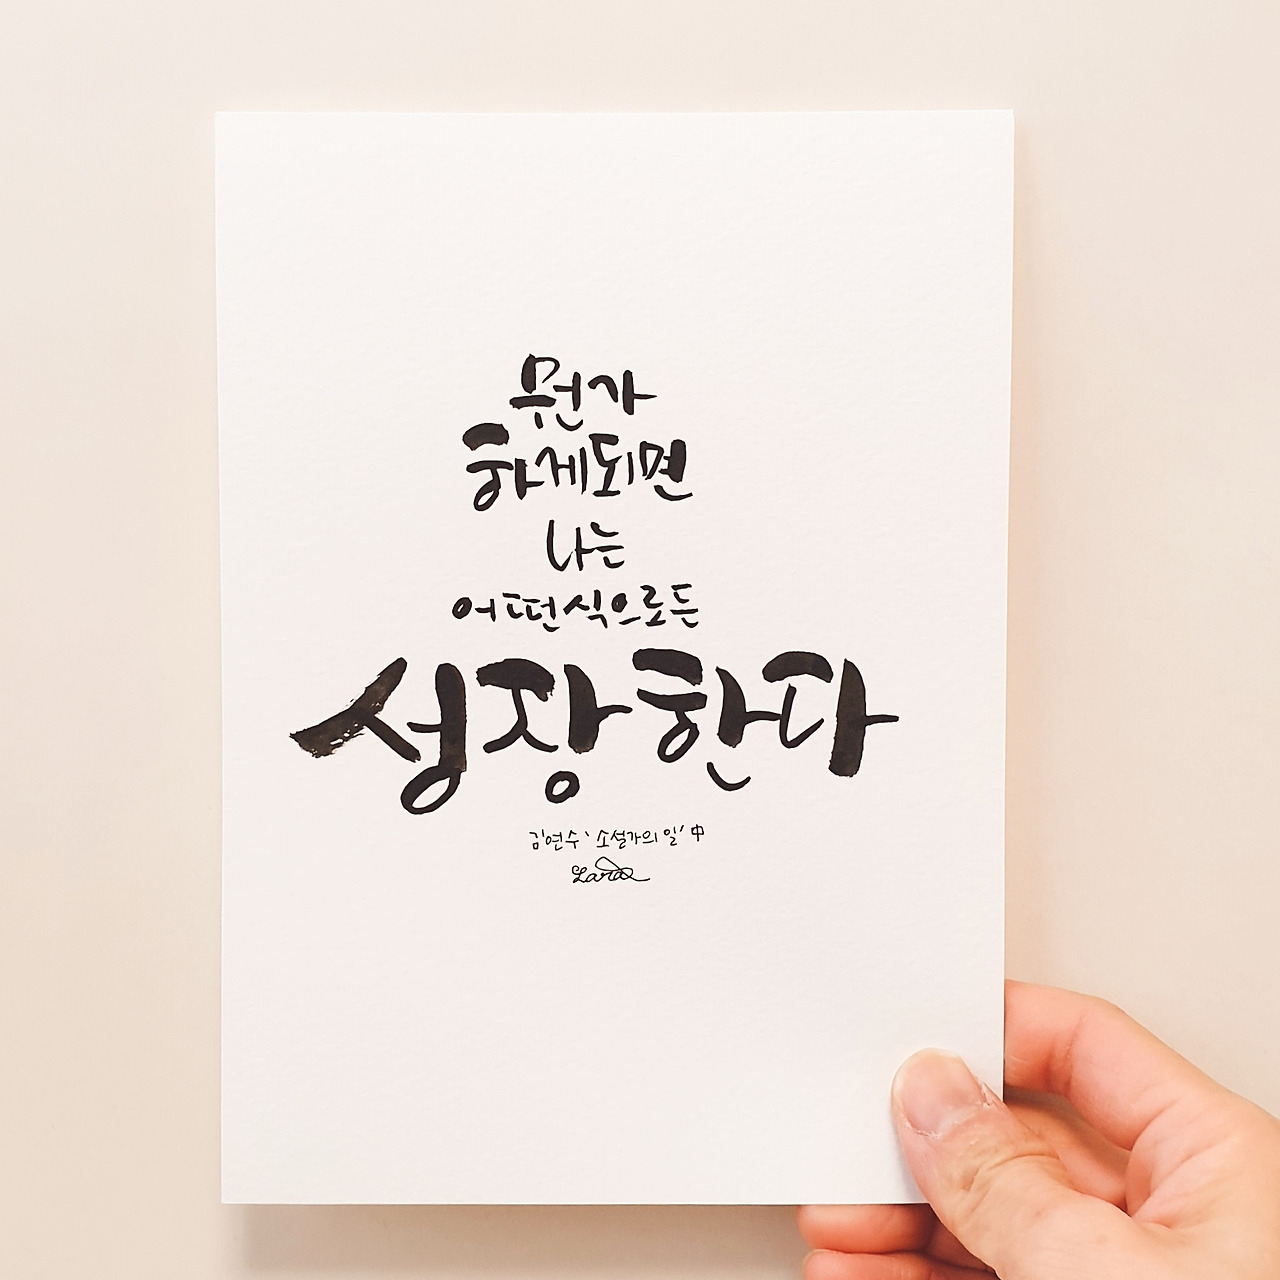 뭔가
하게되면
나는
어떤식으로든
성장한다
김연수 '소설가의 일' 中
Lara